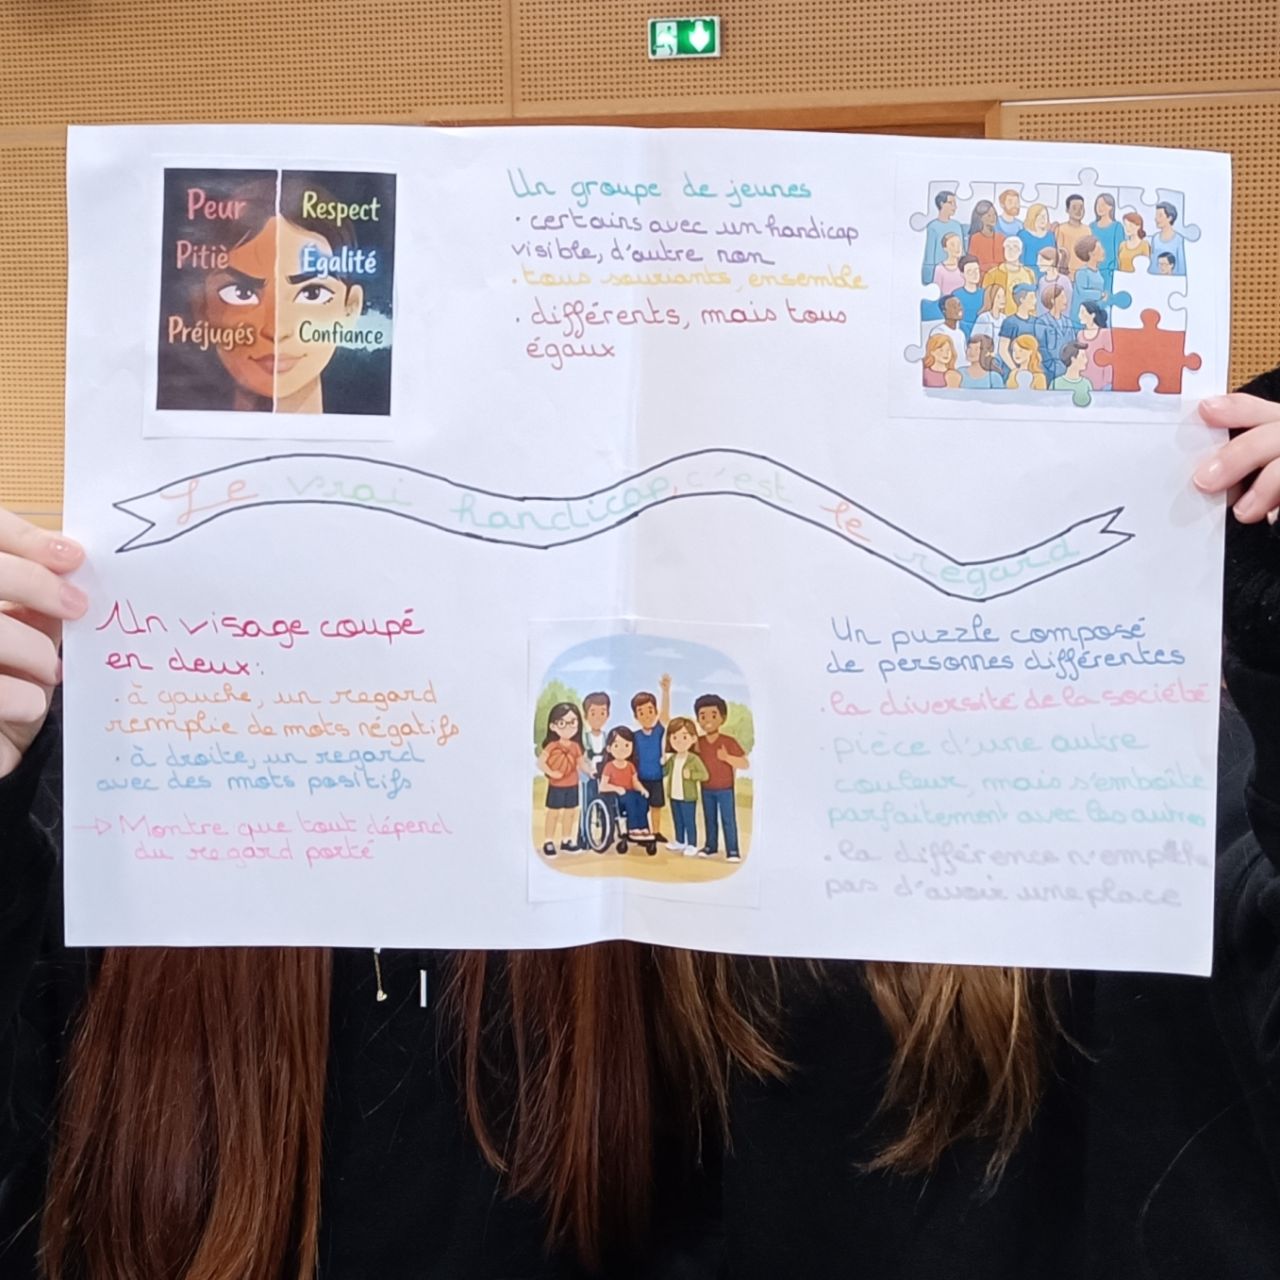 Peur
Pitiè
Préjugés
Respect
Égalité
Confiance
Un groupe de jeunes
· certains avec un handicap
visible, d'autre non
· tous souriants, ensemble
· différents, mais tous
égaux
Le vrai handicap, c'est le regard
Un visage coupé
en deux:
· à gauche, un regard
remplie de mots négatifs
· à droite, un regard
avec des mots positifs
→ Montre que tout dépend
du regard porté
Un puzzle composé
de personnes différentes
· la diversité de la société
· pièce d'une autre
couleur, mais s'emboîte
parfaitement avec les autres
· la différence n'empêche
pas d'avoir une place